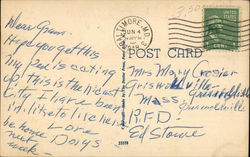 Dear Gram.
Hope you get this
My pen is acting
up this is the nicest
City I have been
I'd like to live here
Love
be home Doigs
next
week -
BALTIMORE, MD.
JUN 4
POST CARD
Mrs Mary Crosier
Griswoldville
Mass. Griswoldville
R.F.D.
Ed Stowe